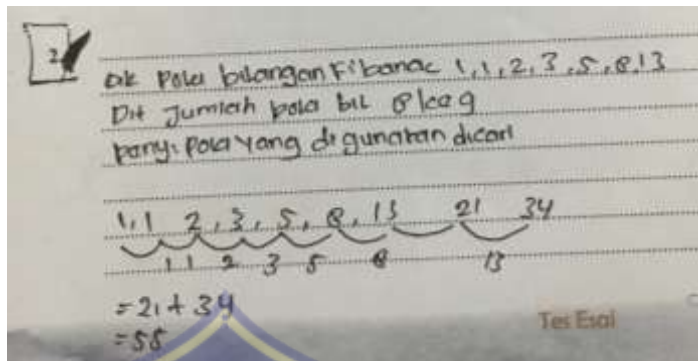 2
Dik Pola bilangan Fibonac 1,1,2,3,5,8,13
Dit Jumlah pola bil 8 ke 9
peny: Pola yang digunakan dicari
1,1 2,3,5,8,13 21 34
1 1 2 3 5 8 13
=21+34
=55
Tes Esai